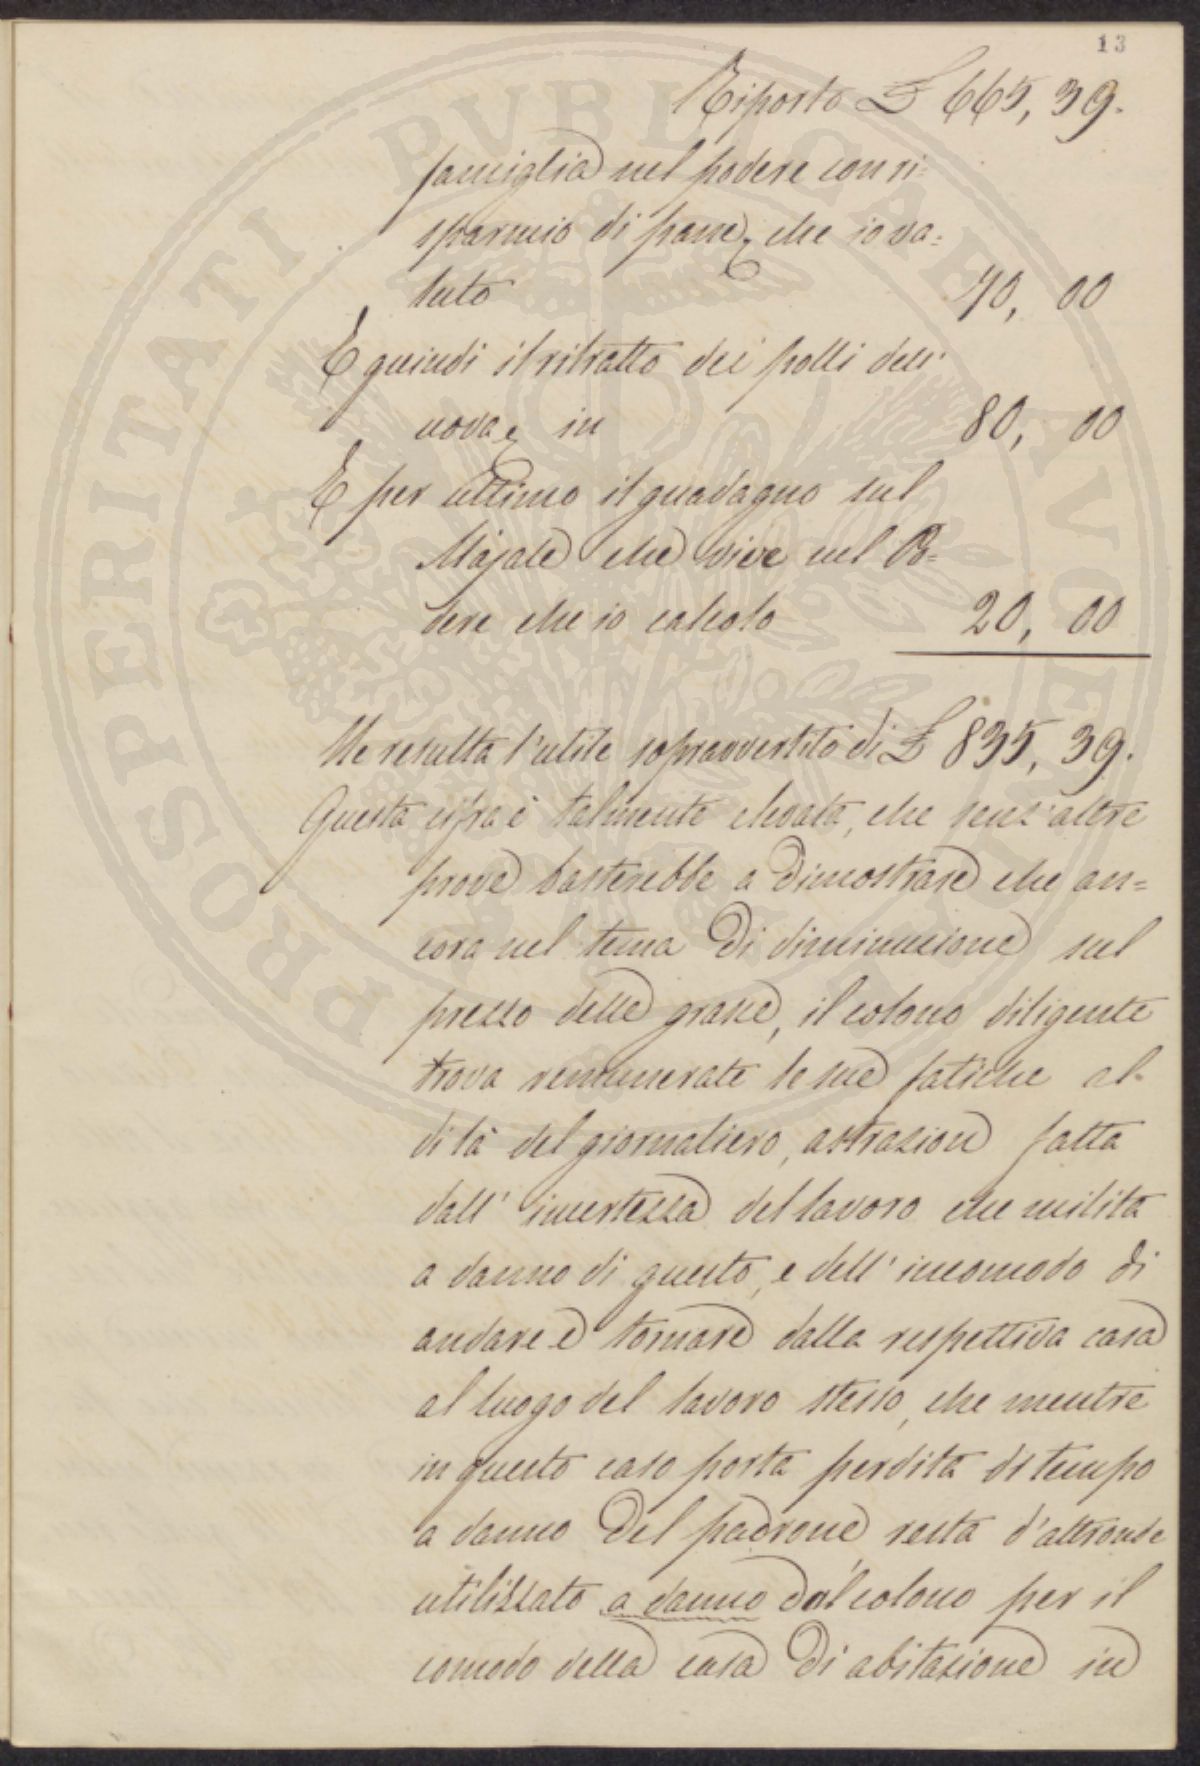 13
Riporto £ 665, 39.
famiglia nel podere con ri=
sparmio di pane, che io va=
luto 70, 00
E quindi il ritratto dei polli dell'
uova, in 80, 00
E per ultimo il guadagno sul
Majale che vive nel Po=
dere che io calcolo 20, 00
Ne resulta l'utile sopravvertito di £ 835, 39.
Questa cifra è talmente elevata, che senz'altre
prove basterebbe a dimostrare che an=
cora nel tema di diminuzione sul
prezzo delle grasce, il colono diligente
trova remunerate le sue fatiche al
di là del giornaliero, astrazione fatta
dall' incertezza del lavoro che milita
a danno di questo, e dell' incomodo di
andare e tornare dalla respettiva casa
al luogo del lavoro stesso, che mentre
in questo caso porta perdita di tempo
a danno del padrone resta d'altronde
utilizzato a danno dal colono per il
comodo della casa di abitazione in
PROSPERITATI PVBLICAE AVGENDAE